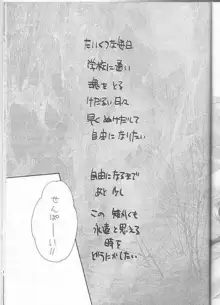 たいくつな毎日
学校に通い
魂をとる
けだるい日々
早くぬけだして
自由になりたい
自由になるまで
あと 少し
この 短くも
永遠と思える
時を
どうにかしたい
せんぱーい!!